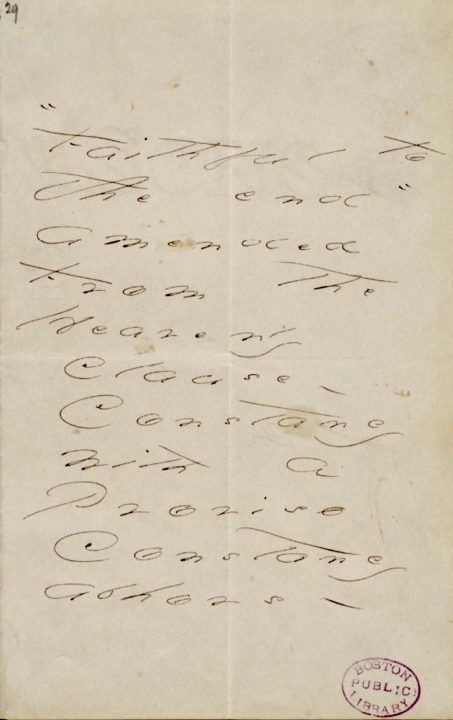 29
"Faithful to
the end"
Amended
from the
Heavenly
Clause –
Constancy
with a
Proviso
Constancy
abhors –
BOSTON
PUBLIC
LIBRARY